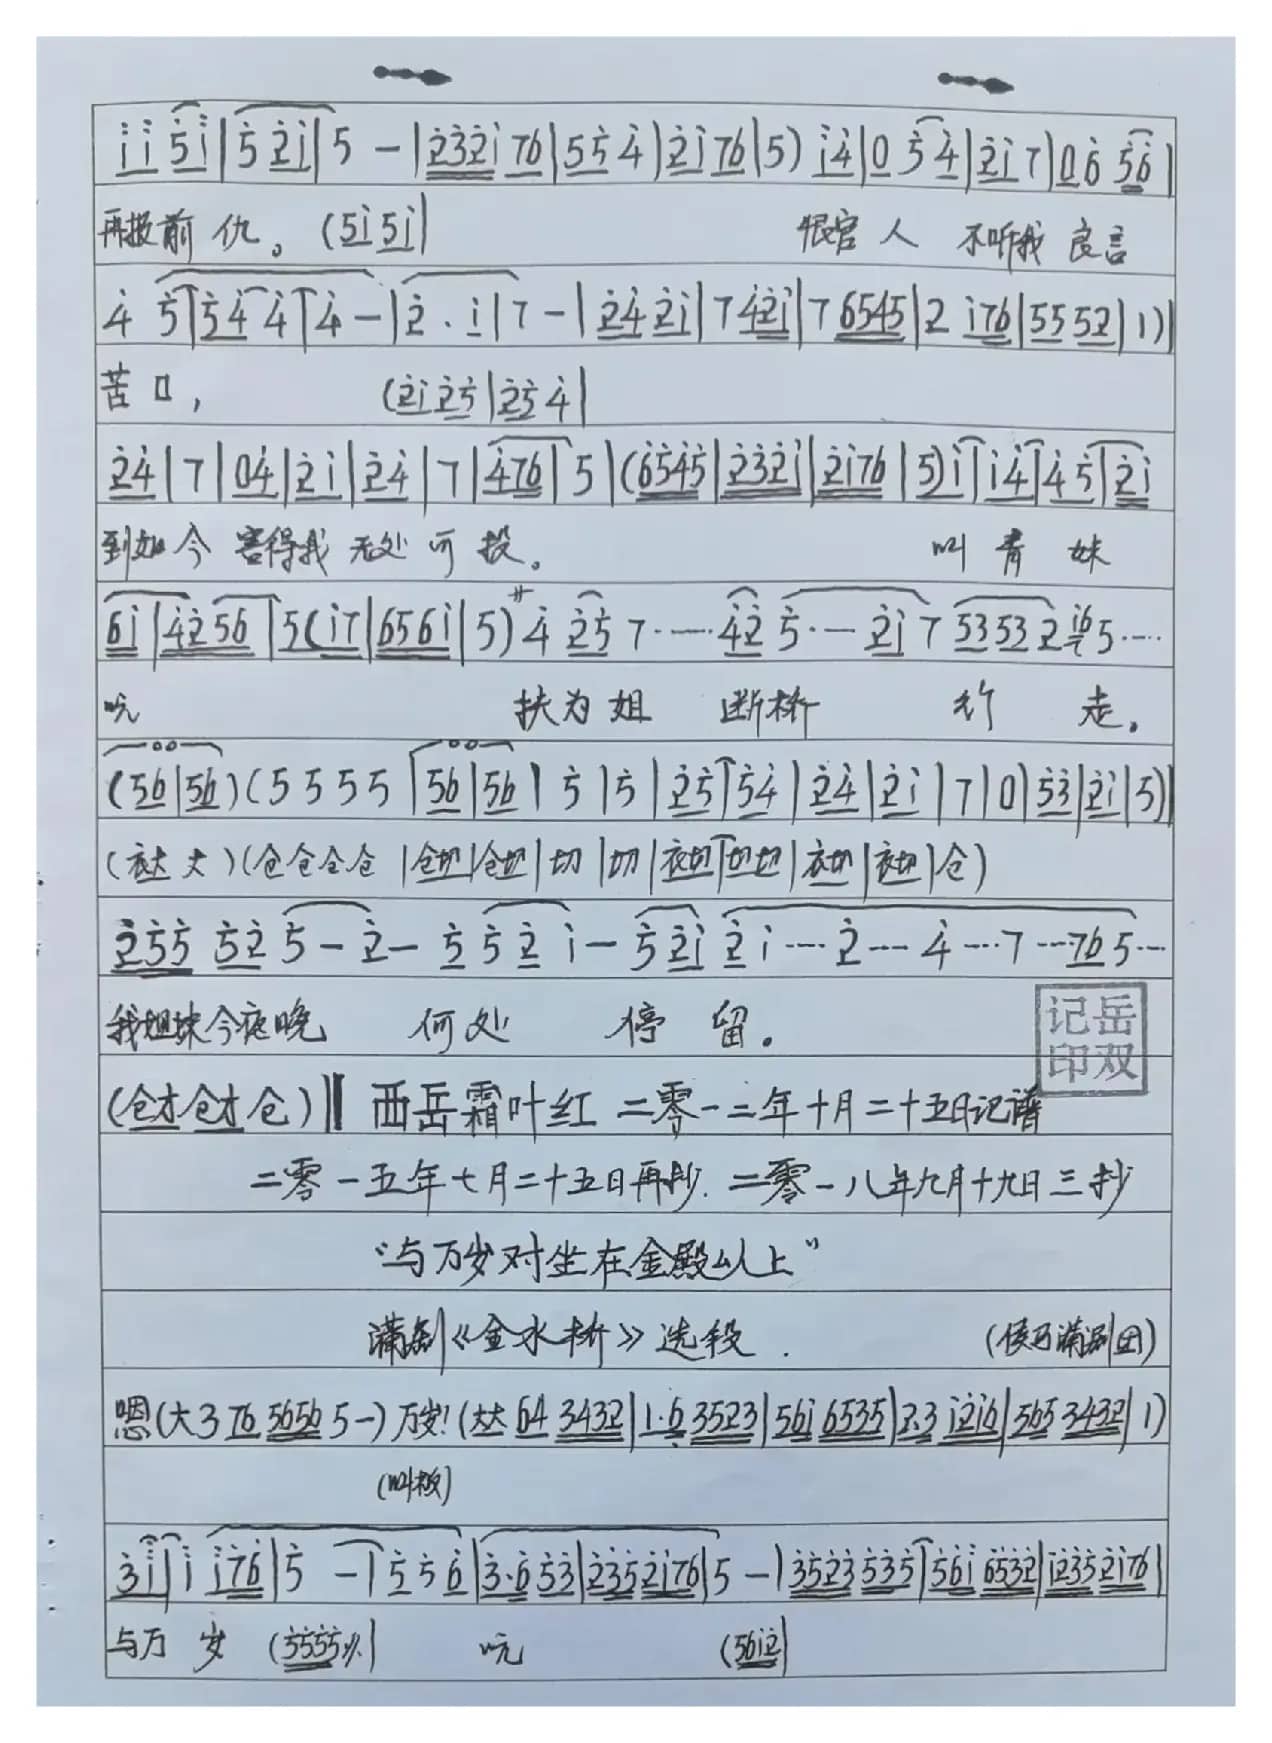 i i 5 i | 5 2 i | 5 - | 2 3 2 i 7 6 | 5 5 4 | 2 i 7 6 | 5 ) i 4 | 0 5 4 | 2 i 7 | 0 6 5 6 |
再报前仇。(5 i 5 i | 恨官人 不听我良言
4 5 | 5 4 4 | 4 - | 2 · i | 7 - | 2 4 2 i | 7 4 2 i | 7 6 5 4 5 | 2 i 7 6 | 5 5 5 2 | 1 ) |
苦口, (2 i 2 5 | 2 5 4 |
2 4 | 7 | 0 4 | 2 i | 2 4 | 7 | 4 7 6 | 5 | ( 6 5 4 5 | 2 3 2 i | 2 i 7 6 | 5 ) i | i 4 | 4 5 | 2 i
到如今 害得我无处可投。 叫青妹
6 i | 4 2 5 6 | 5 ( i 7 | 6 5 6 i | 5 ) サ 4 2 5 7 ····· 4 2 5 · — 2 i 7 5 3 5 3 2 i 6 5 ····
吭 扶为姐 断桥 行 走。
( 5 6 | 5 6 ) ( 5 5 5 5 | 5 6 | 5 6 | 5 | 5 | 2 5 | 5 4 | 2 4 | 2 i | 7 | 0 | 5 3 | 2 i | 5 ) |
(衣大 大)(仓仓仓仓 | 仓切 | 仓切 | 切 | 切 | 衣切 | 切切 | 衣切 | 衣切 | 仓)
2 5 5 5 2 5 - 2 - 5 5 2 i - 5 2 i 2 i ···· 2 ···· 4 ···· 7 ···· 7 6 5 ····
我姐妹今夜晚 何处 停 留。
记岳
印双
(仓才仓才仓)‖ 西岳霜叶红 二零一二年十月二十五日记谱
二零一五年七月二十五日再抄. 二零一八年九月十九日三抄
“与万岁对坐在金殿以上”
蒲剧《金水桥》选段. (侯马蒲剧团)
嗯(大 3 7 6 5 6 5 6 5 - ) 万岁! (大大 6 4 3 4 3 2 | 1 · 6 3 5 2 3 | 5 6 i 6 5 3 5 | 2 · 3 i 2 i 6 | 5 6 5 3 4 3 2 | 1 )
(叫板)
3 i | i i 7 6 | 5 - | 5 5 6 | 3 · 6 5 3 | 2 3 5 2 i 7 6 | 5 - | 3 5 2 3 5 3 5 | 5 6 i 6 5 3 2 | i 2 3 5 2 i 7 6 |
与万 岁 (5 5 5 5 | 吭 (5 6 i 2 |